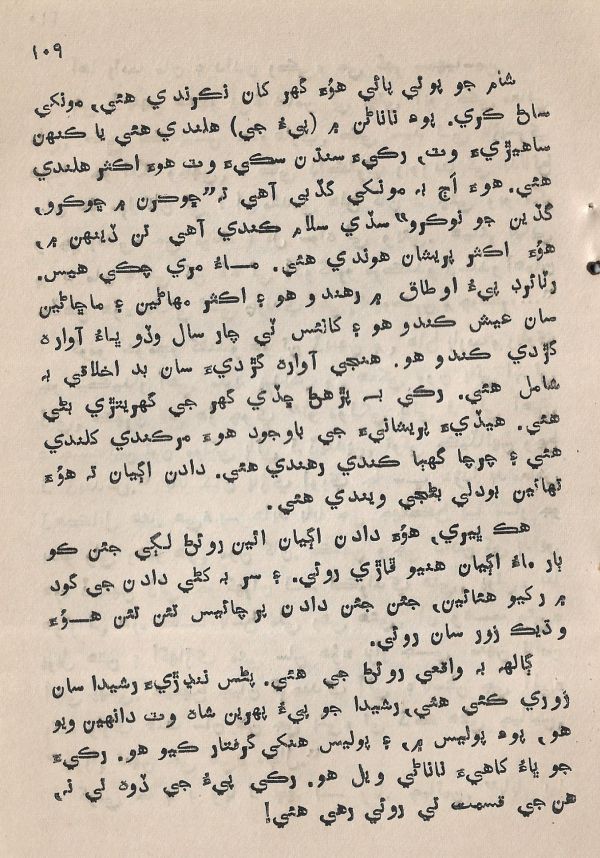 ١٠٩
شام جو پوئي پائي هوءَ گهر کان نڪرندي هئي، مونکي
ساڻ ڪري. پوءِ ناناڻن ۾ (پيءُ جي) هلندي هئي يا ڪنهن
ساهيڙيءَ وٽ، رڪيءَ سنڌن سکيءَ وٽ هوءَ اڪثر هلندي
هئي. هوءَ اڄ به مونکي گڏبي آهي ته ”ڇوڪرن ۾ ڇوڪرو،
گڏين جو نوڪرو“ سڏي سلام ڪندي آهي تن ڏينهن ۾،
هوءَ اڪثر پريشان هوندي هئي. مــاءُ مري چڪي هيس.
رٽائرڊ پيءُ اوطاق ۾ رهندو هو ۽ اڪثر مهاڻين ۽ ماڇاڻين
سان عيش ڪندو هو ۽ کانئس ٽي چار سال وڏو ڀاءُ آواره
گردي ڪندو هو. هنجي آواره گرديءَ سان بد اخلاقي به
شامل هئي. رڪي بــ پڙهڻ ڇڏي گهر جي گهرينڙي بڻي
هئي. هيڏيءَ پريشانيءَ جي باوجود هوءَ مرڪندي کلندي
هئي ۽ چرچا گهبا ڪندي رهندي هئي. دادن اڳيان ته هوءَ
تهائين ٻودلي بڻجي ويندي هئي.
هڪ ڀيري، هوءَ دادن اڳيان ائين روئڻ لڳي جئن ڪو
ٻار ماءُ اڳيان هنيو ڦاڙي روئي. ۽ سر به کڻي دادن جي گود
۾ رکيو هئائين، جئن جئن دادن پرچائيس تئن تئن هــوءَ
وڌيڪ زور سان روئي.
ڳالهه به واقعي روئڻ جي هئي. پڻس ننڍڙيءَ رشيدا سان
زوري ڪئي هئي، رشيدا جو پيءُ پهرين شاه وٽ دانهين ويو
هو، پوءِ پوليس ۾، ۽ پوليس هنکي گرفتار ڪيو هو. رڪيءَ
جو ڀاءُ کاهيءَ ناناڻي ويل هو. رڪي پيءُ جي ڏوهه تي نه،
هن جي قسمت تي روئي رهي هئي!